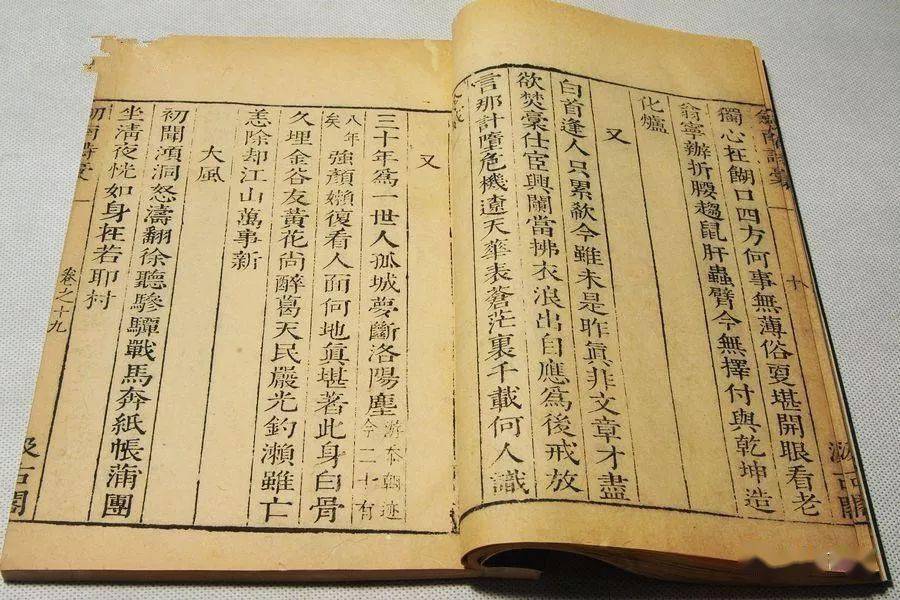 劍南詩藁
十
汲古閣
獨心在餬口四方何事無薄俗更堪開眼看老
翁寧辦折腰趨鼠肝蟲臂今無擇付與乾坤造
化爐
又
白首逢人只累欷今雖未是昨眞非文章才盡
欲焚藁仕宦興闌當拂衣浪出自應爲後戒放
言那計墮危機遼天華表蒼茫裏千載何人識
令威
又
三十年爲一世人孤城夢斷洛陽塵
今二十有
八年
矣
強顏嬾復看人面何地眞堪著此身白骨
久埋金谷友黃花尚醉葛天民嚴光釣瀨雖亡
恙除却江山萬事新
大風
初聞澒洞怒濤翻徐聽驂驔戰馬奔紙帳蒲團
坐淸夜恍如身在若耶村
劍南詩藁
卷之十九
汲古閣